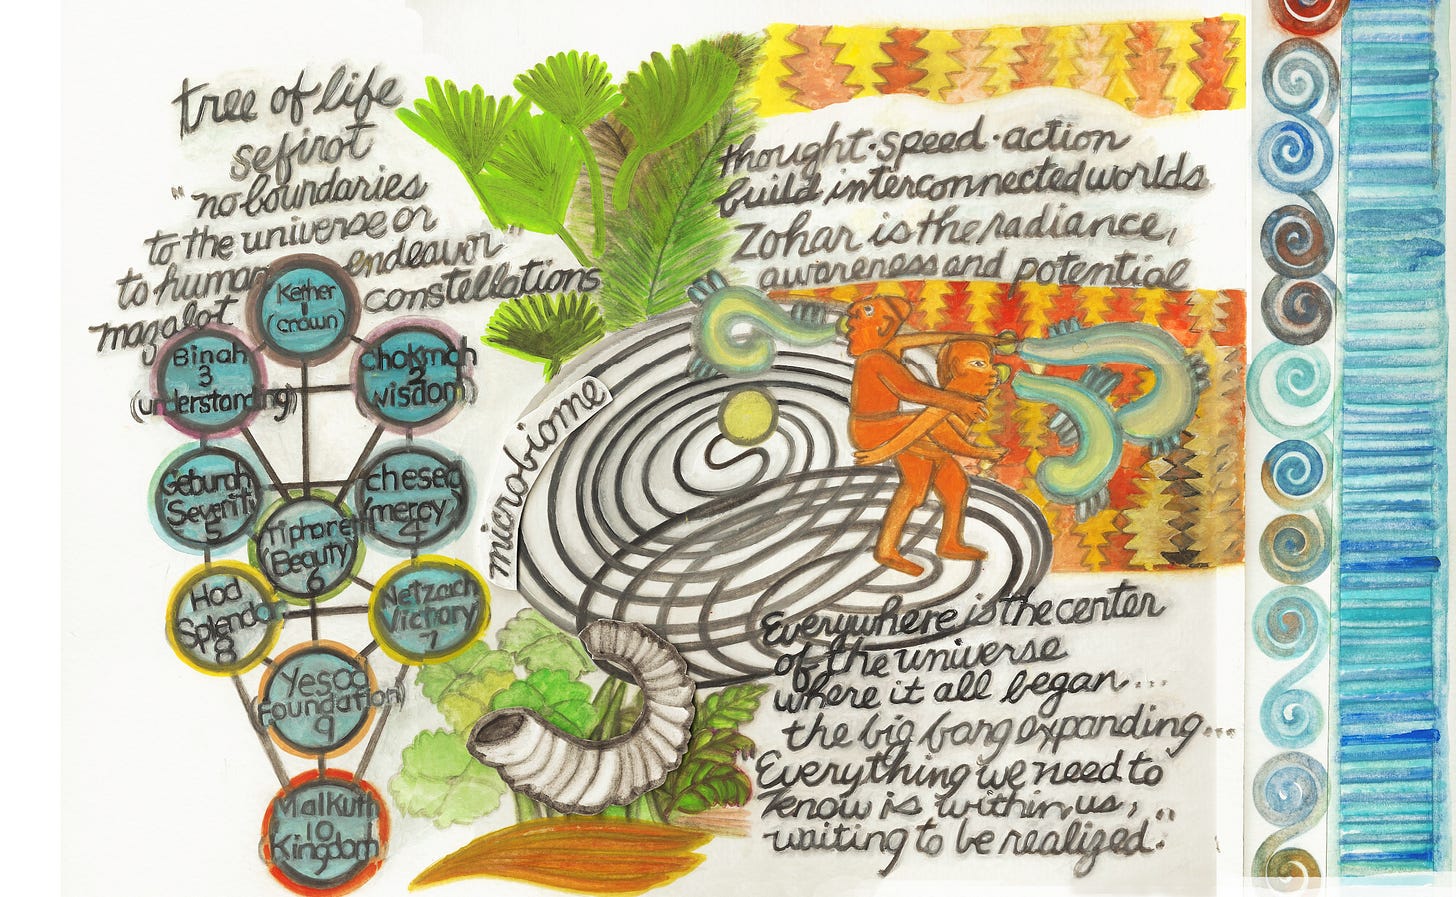 tree of life
sefirot
"no boundaries
to the universe or
to human endeavor"
mazalot constellations
Kether
1
(crown)
Binah
3
(understanding)
chokmah
2
wisdom)
Geburah
Severity
5
chesed
(mercy)
4
Tiphoreth
(Beauty)
6
Hod
Splendor
8
Netzach
Victory
7
Yesod
Foundation)
9
Malkuth
10
Kingdom
microbiome
thought·speed·action
build interconnected worlds
Zohar is the radiance,
awareness and potential
Everywhere is the center
of the universe
where it all began...
the big bang expanding...
"Everything we need to
know is within us,
waiting to be realized."